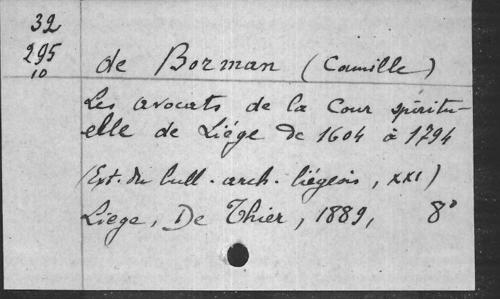 32
295
10
de Borman (Camille)
Les avocats de la Cour spiritu-
elle de Liége de 1604 à 1794
(Ext. du bull. arch. liégeois, XXI)
Liege, De Thier, 1889, 8°